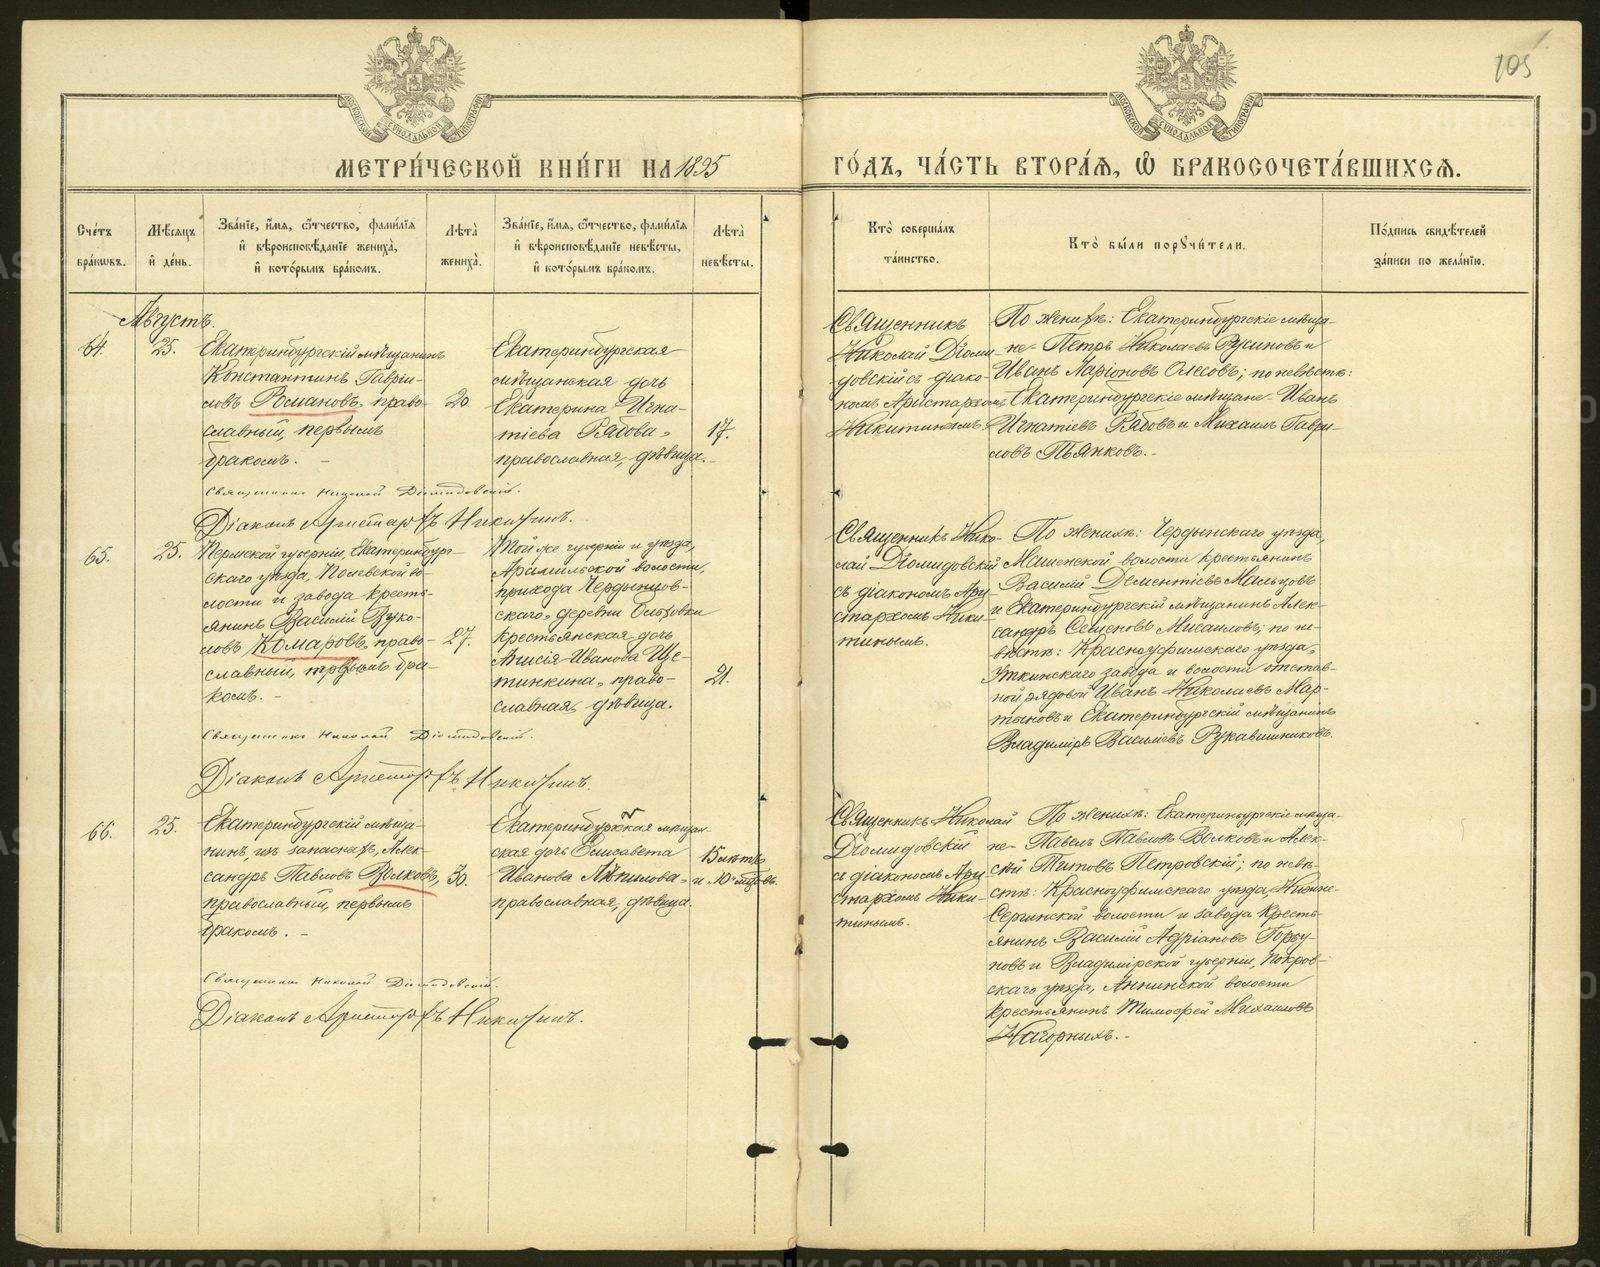 105
МЕТРИ́ЧЕСКОЙ КНИ́ГИ НА 1895
ГО́ДЪ, ЧА́СТЬ ВТОРА́Ѧ, Ѡ҆ БРАКОСОЧЕТА́ВШИХСѦ.
Сче́тъ бра́ковъ.
Мѣ́сяцъ и҆ де́нь.
Зва́нїе, и҆́мя, ѻ҆́тчество, фами́лїя и҆ вѣроисповѣ́данїе жениха̀, и҆ кото́рымъ бра́комъ.
Лѣ́та жениха̀.
Зва́нїе, и҆́мя, ѻ҆́тчество, фами́лїя и҆ вѣроисповѣ́данїе невѣ́сты, и҆ кото́рымъ бра́комъ.
Лѣ́та невѣ́сты.
Кто̀ соверша́лъ та́инство.
Кто̀ бы́ли порꙋчи́тели.
По́дпись свидѣ́телей за́писи по жела́нїю.
Августъ.
64.
25.
Екатеринбургскій мѣщанинъ
Константинъ Гаври-
ловъ Романовъ, право-
славный, первымъ
бракомъ. -
20.
Екатеринбургская
мѣщанская дочь
Екатерина Игна-
тіева Рябова,
православная, дѣвица.
17.
Священникъ
Николай Діоми-
довскій съ діако-
номъ Аристархомъ
Никитинымъ.
По женихѣ: Екатеринбургскіе мѣща-
не - Петръ Николаевъ Русиновъ и
Иванъ Ларіоновъ Олесовъ; по невѣстѣ:
Екатеринбургскіе мѣщане - Иванъ
Игнатіевъ Рябовъ и Михаилъ Гаври-
ловъ Пьянковъ. -
Священникъ Николай Діомидовскій.
Діаконъ Аристархъ Никитинъ.
65.
25.
Пермской губерніи, Екатеринбург-
скаго уѣзда, Полевской во-
лости и завода кресть-
янинъ Василій Вуко-
ловъ Комаровъ, право-
славный, первымъ бра-
комъ. -
27.
Той же губерніи и уѣзда,
Арамильской волости,
прихода
скаго, деревни
крестьянская дочь
Анисія Иванова Ще-
тинкина, право-
славная, дѣвица.
21.
Священникъ Нико-
лай Діомидовскій
съ діакономъ Ари-
стархомъ Ники-
тинымъ.
По женихѣ: Чердынскаго уѣзда,
волости крестьянинъ
Василій Дементіевъ Мальцовъ
и Екатеринбургскій мѣщанинъ Алек-
сандръ Семеновъ Мисаиловъ; по не-
вѣстѣ: Красноуфимскаго уѣзда,
Уткинскаго завода и волости отстав-
ной рядовой Иванъ Николаевъ Мар-
тыновъ и Екатеринбургскій мѣщанинъ
Владиміръ Василіевъ Рукавишниковъ.
Священникъ Николай Діомидовскій.
Діаконъ Аристархъ Никитинъ.
66.
25.
Екатеринбургскій мѣща-
нинъ, изъ запасныхъ, Алек-
сандръ Павловъ Волковъ,
православный, первымъ
бракомъ. -
30.
Екатеринбургская мѣщан-
ская дочь Елисавета
Иванова Лѣпилова,
православная, дѣвица.
15 лѣтъ
и 10 мѣсцовъ.
Священникъ Николай
Діомидовскій
съ діакономъ Ари-
стархомъ Ники-
тинымъ.
По женихѣ: Екатеринбургскіе мѣща-
не - Павелъ Павловъ Волковъ и Алек-
сѣй Титовъ Петровскій; по невѣ-
стѣ: Красноуфимскаго уѣзда Нижне-
Сергинской волости и завода кресть-
янинъ Василій Адріановъ Горбу-
новъ и Владимірской губерніи, Покров-
скаго уѣзда, Аннинской волости
крестьянинъ Тимофей Михаиловъ
Нагорныхъ. -
Священникъ Николай Діомидовскій.
Діаконъ Аристархъ Никитинъ.
METRIKI.GASO-URAL.RU